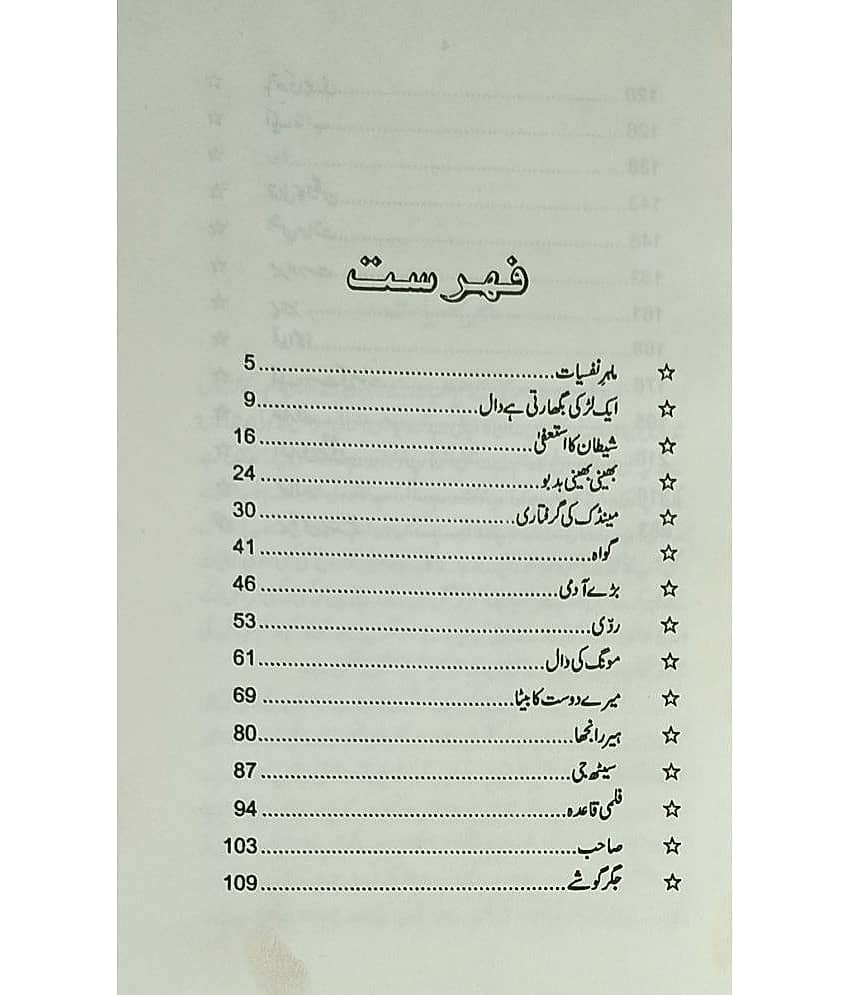 فہرست
☆ ماہرِ نفسیات 5
☆ ایک لڑکی بگھارتی ہے دال 9
☆ شیطان کا استعفیٰ 16
☆ بھینی بھینی بدبو 24
☆ مینڈک کی گرفتاری 30
☆ گواہ 41
☆ بڑے آدمی 46
☆ ردّی 53
☆ مونگ کی دال 61
☆ میرے دوست کا بیٹا 69
☆ ہیر رانجھا 80
☆ سیٹھ جی 87
☆ فلمی قاعدہ 94
☆ صاحب 103
☆ جگر گوشے 109